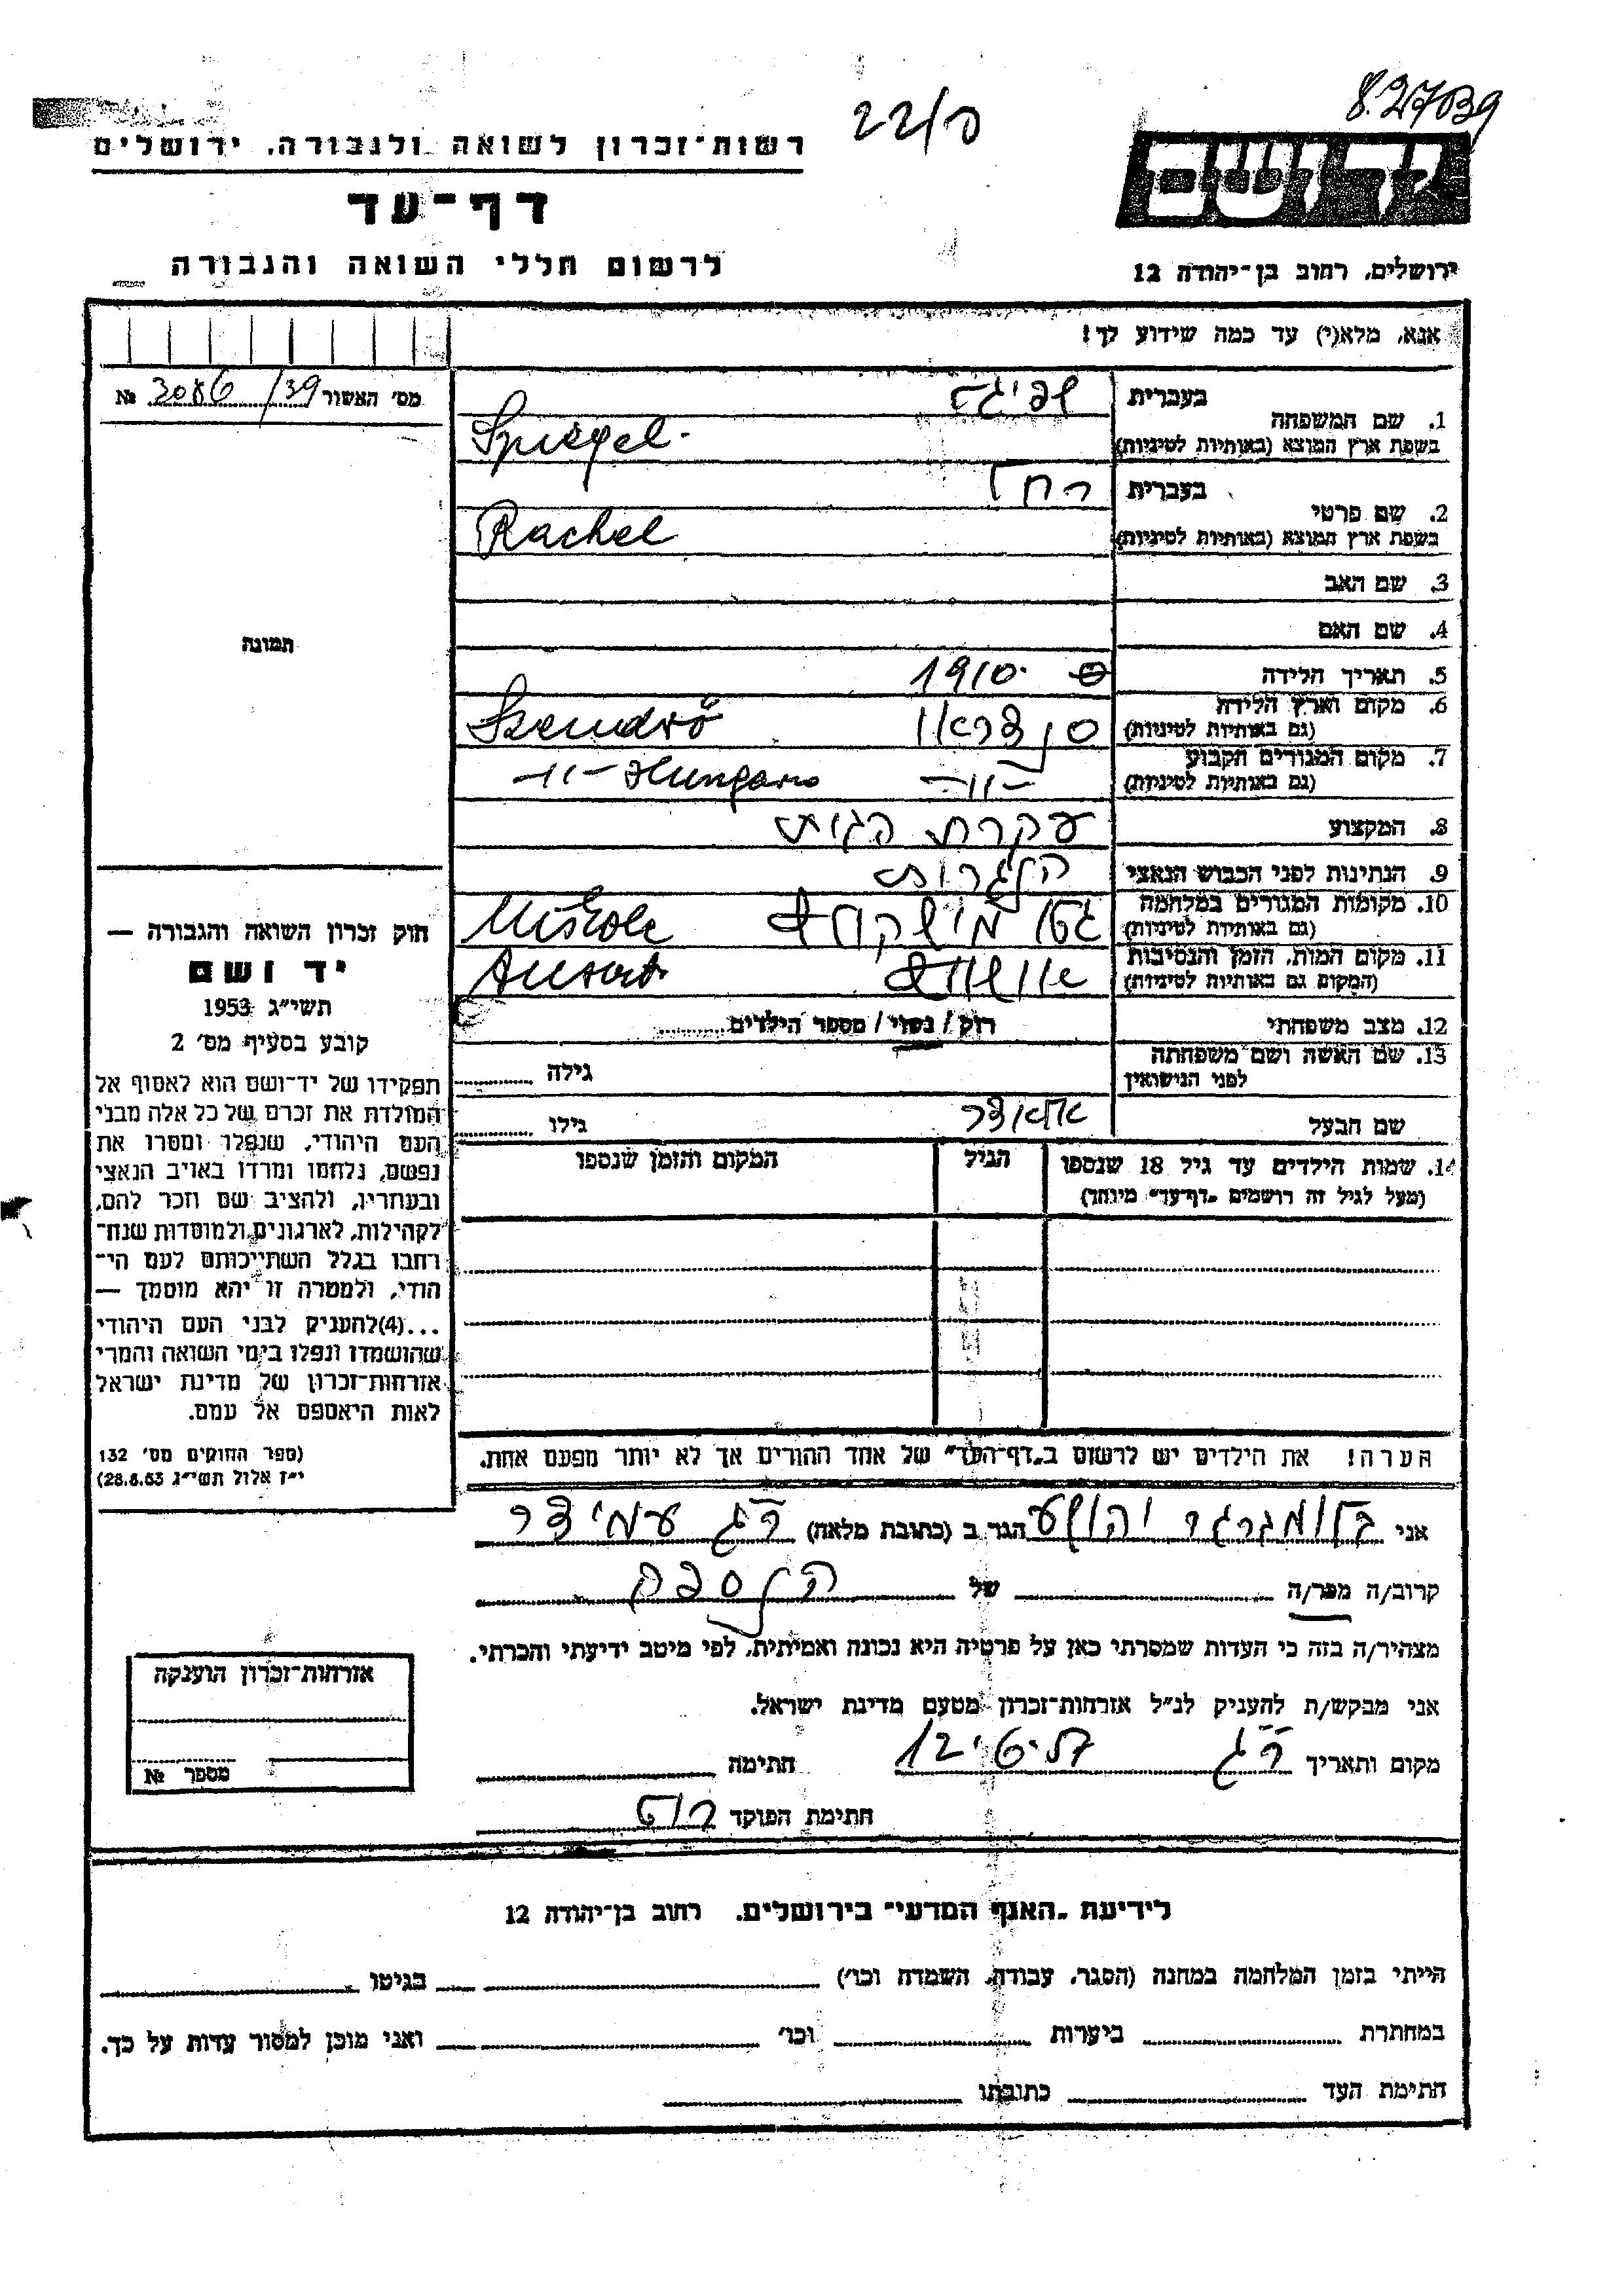 8.27039
22/ס
יד ושם
רשות־זכרון לשואה ולגבורה, ירושלים
דף־עד
לרשום חללי השואה והגבורה
ירושלים, רחוב בן־יהודה 12
אנא, מלא(י) עד כמה שידוע לך!
מס׳ האשור 3086/39 №
בעברית שפיגל
1. שם המשפחה
בשפת ארץ המוצא (באותיות לטיניות) Spiegel
בעברית רחל
2. שם פרטי
בשפת ארץ המוצא (באותיות לטיניות) Rachel
3. שם האב
4. שם האם
תמונה
5. תאריך הלידה 1910
6. מקום וארץ הלידה
(גם באותיות לטיניות) Szendrő
7. מקום המגורים הקבוע
(גם באותיות לטיניות) -"- -"- Hungaro
8. המקצוע עקרת הבית
9. הנתינות לפני הכבוש הנאצי הונגרית
10. מקומות המגורים במלחמה
(גם באותיות לטיניות) גטו מישקולץ Miskolc
11. מקום המות, הזמן והנסיבות
(המקום גם באותיות לטיניות) אושוויץ
12. מצב משפחתי רוק / נשוי / מספר הילדים
13. שם האשה ושם משפחתה
לפני הנישואין גילה
שם הבעל גילו
14. שמות הילדים עד גיל 18 שנספו הגיל המקום והזמן שנספו
(מעל לגיל זה רושמים „דף־עד״ מיוחד)
חוק זכרון השואה והגבורה —
יד ושם
תשי״ג 1953
קובע בסעיף מס׳ 2
תפקידו של יד־ושם הוא לאסוף אל
המולדת את זכרם של כל אלה מבני
העם היהודי, שנפלו ומסרו את
נפשם, נלחמו ומרדו באויב הנאצי
ובעוזריו, ולהציב שם וזכר להם,
לקהילות, לארגונים ולמוסדות שנח־
רחבו בגלל השתייכותם לעם הי־
הודי, ולמטרה זו יהא מוסמך —
...(4)להעניק לבני העם היהודי
שהושמדו ונפלו בימי השואה והמרי
אזרחות־זכרון של מדינת ישראל
לאות היאספם אל עמם.
(ספר החוקים מס׳ 132
י״ז אלול תשי״ג 28.8.53)
הערה! את הילדים יש לרשום ב„דף־העד״ של אחד ההורים אך לא יותר מפעם אחת.
אני בלומברגר יהושע הגר ב (כתובת מלאה) ר״ג עמידר
קרוב/ה מכר/ה של הנספה
מצהיר/ה בזה כי העדות שמסרתי כאן על פרטיה היא נכונה ואמיתית, לפי מיטב ידיעתי והכרתי.
אני מבקש/ת להעניק לנ״ל אזרחות־זכרון מטעם מדינת ישראל.
מקום ותאריך ר״ג חתימה
חתימת הפוקד
אזרחות־זכרון הוענקה
מספר №
לידיעת „האגף המדעי״ בירושלים, רחוב בן־יהודה 12
הייתי בזמן המלחמה במחנה (הסגר, עבודה, השמדה וכו׳) בגיטו
במחתרת ביערות וכו׳ ואני מוכן למסור עדות על כך.
חתימת העד כתובתו